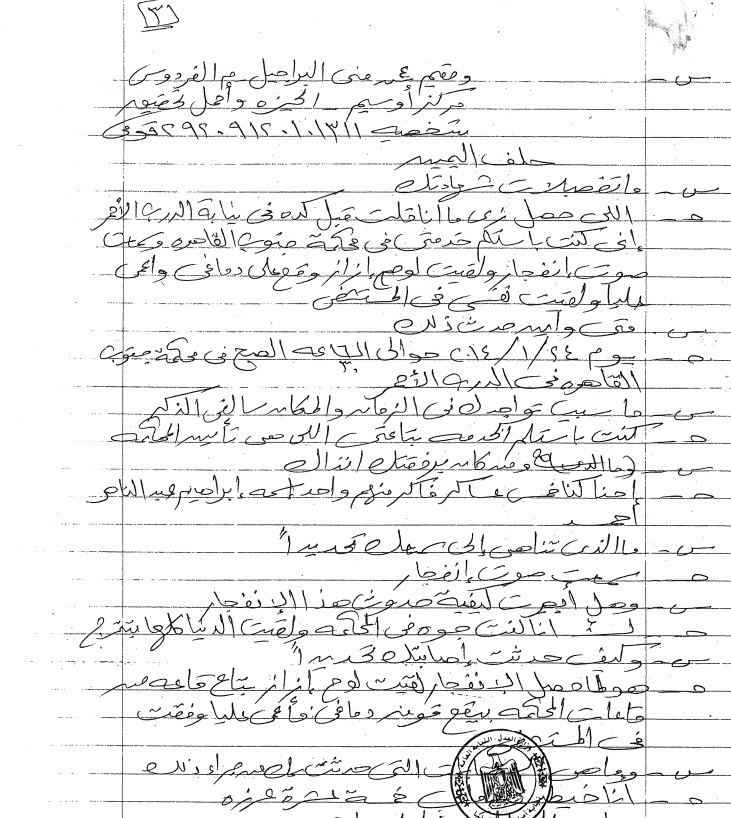 ٣
س - ومقيم عن منى البراجيل م الفردوس
مركز أوسيم - الجيزه وأحمل تحقيق
شخصيه ٢٩٢٠٩١٢٠١٠١٣١١ قومى
حلف اليمين
س - ما تفصيلات شهادتك
ج - اللى حصل زى ما أنا قلت قبل كده فى نيابة الدرب الأحمر
إنى كنت باستلم خدمتى فى محكمة جنوب القاهره وسمعت
صوت إنفجار ولقيت لوح إزاز وقع على دماغى واغمى
عليا ولقيت نفسى فى المستشفى
س - متى وأين حدث ذلك
ج - يوم ٢٤/١/٢٠١٤ حوالى الساعه ٦٫٣٠ الصبح فى محكمة جنوب
القاهره فى الدرب الأحمر
س - ما سبب تواجدك فى الزمان والمكان سالفى الذكر
ج - كنت باستلم الخدمه بتاعتى اللى هى تأمين المحكمه
س - ومن كان برفقتك انذاك
ج - إحنا كنا خمس عساكر فاكر منهم واحد إسمه إبراهيم عبد الناصر
أحمد
س - ما الذى تناهى إلى سمعك تحديداً
ج - سمعت صوت إنفجار
س - وهل أبصرت كيفية حدوث هذا الإنفجار
ج - لا انا كنت جوه فى المحكمه ولقيت الدنيا كلها بتترج
س - وكيف حدثت إصابتك تحديداً
ج - هو لما حصل الإنفجار لقيت لوح إزاز بتاع قاعه من
قاعات المحكمه بيقع فوق دماغى فأغمى عليا وفقت
فى
س - وما هى التى حدثت لك من جراء ذلك
ج - أنا خمسة عشرة غرزه